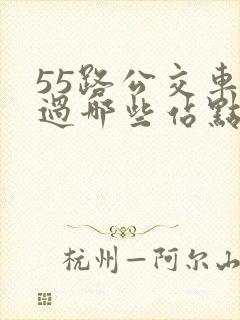 55路公交車
過哪些站點
杭州—阿尔山